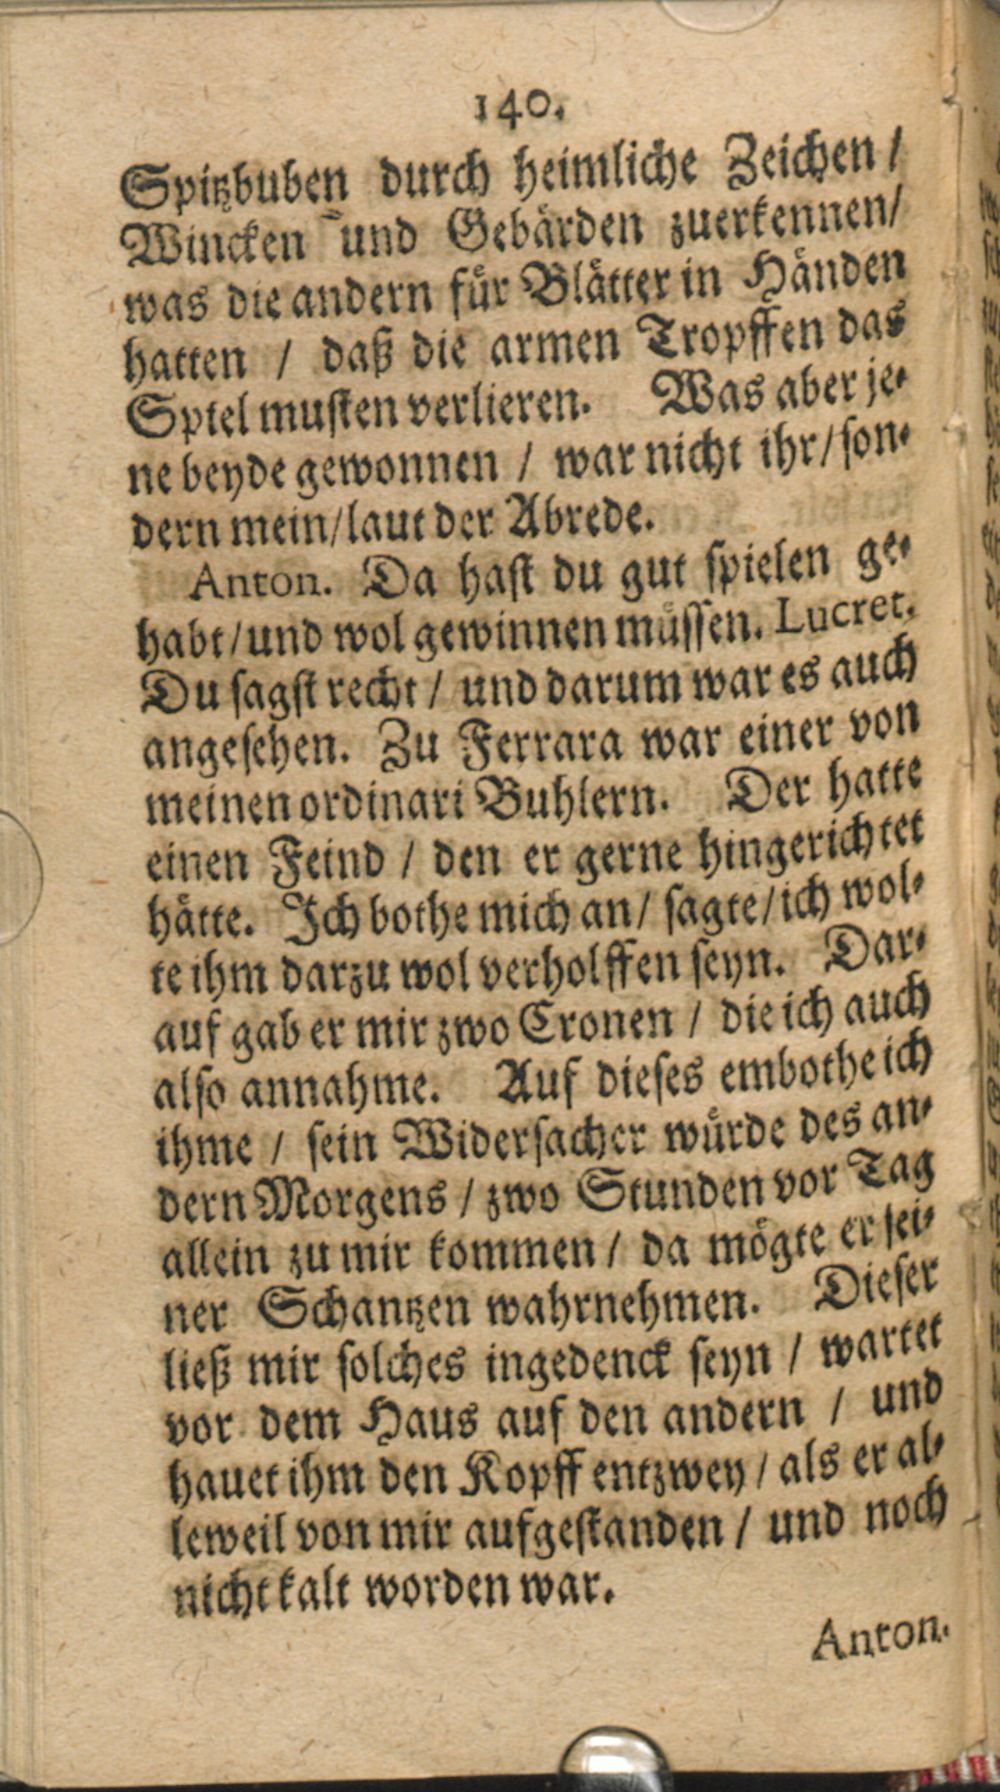 140.
Spitzbuben durch heimliche Zeichen /
Wincken und Gebärden zuerkennen/
was die andern für Blätter in Händen
hatten / daß die armen Tropffen das
Spiel musten verlieren. Was aber je-
ne beyde gewonnen / war nicht ihr/ son-
dern mein/ laut der Abrede.
Anton. Da hast du gut spielen ge-
habt/ und wol gewinnen müssen. Lucret.
Du sagst recht / und darum war es auch
angesehen. Zu Ferrara war einer von
meinen ordinari Buhlern. Der hatte
einen Feind / den er gerne hingerichtet
hätte. Ich bothe mich an/ sagte/ ich wol-
te ihm darzu wol verholffen seyn. Dar-
auf gab er mir zwo Cronen / die ich auch
also annahme. Auf dieses embothe ich
ihme / sein Widersacher würde des an-
dern Morgens / zwo Stunden vor Tag
allein zu mir kommen / da mögte er sei-
ner Schantzen wahrnehmen. Dieser
ließ mir solches ingedenck seyn / wartet
vor dem Haus auf den andern / und
hauet ihm den Kopff entzwey / als er al-
leweil von mir aufgestanden / und noch
nicht kalt worden war.
Anton.